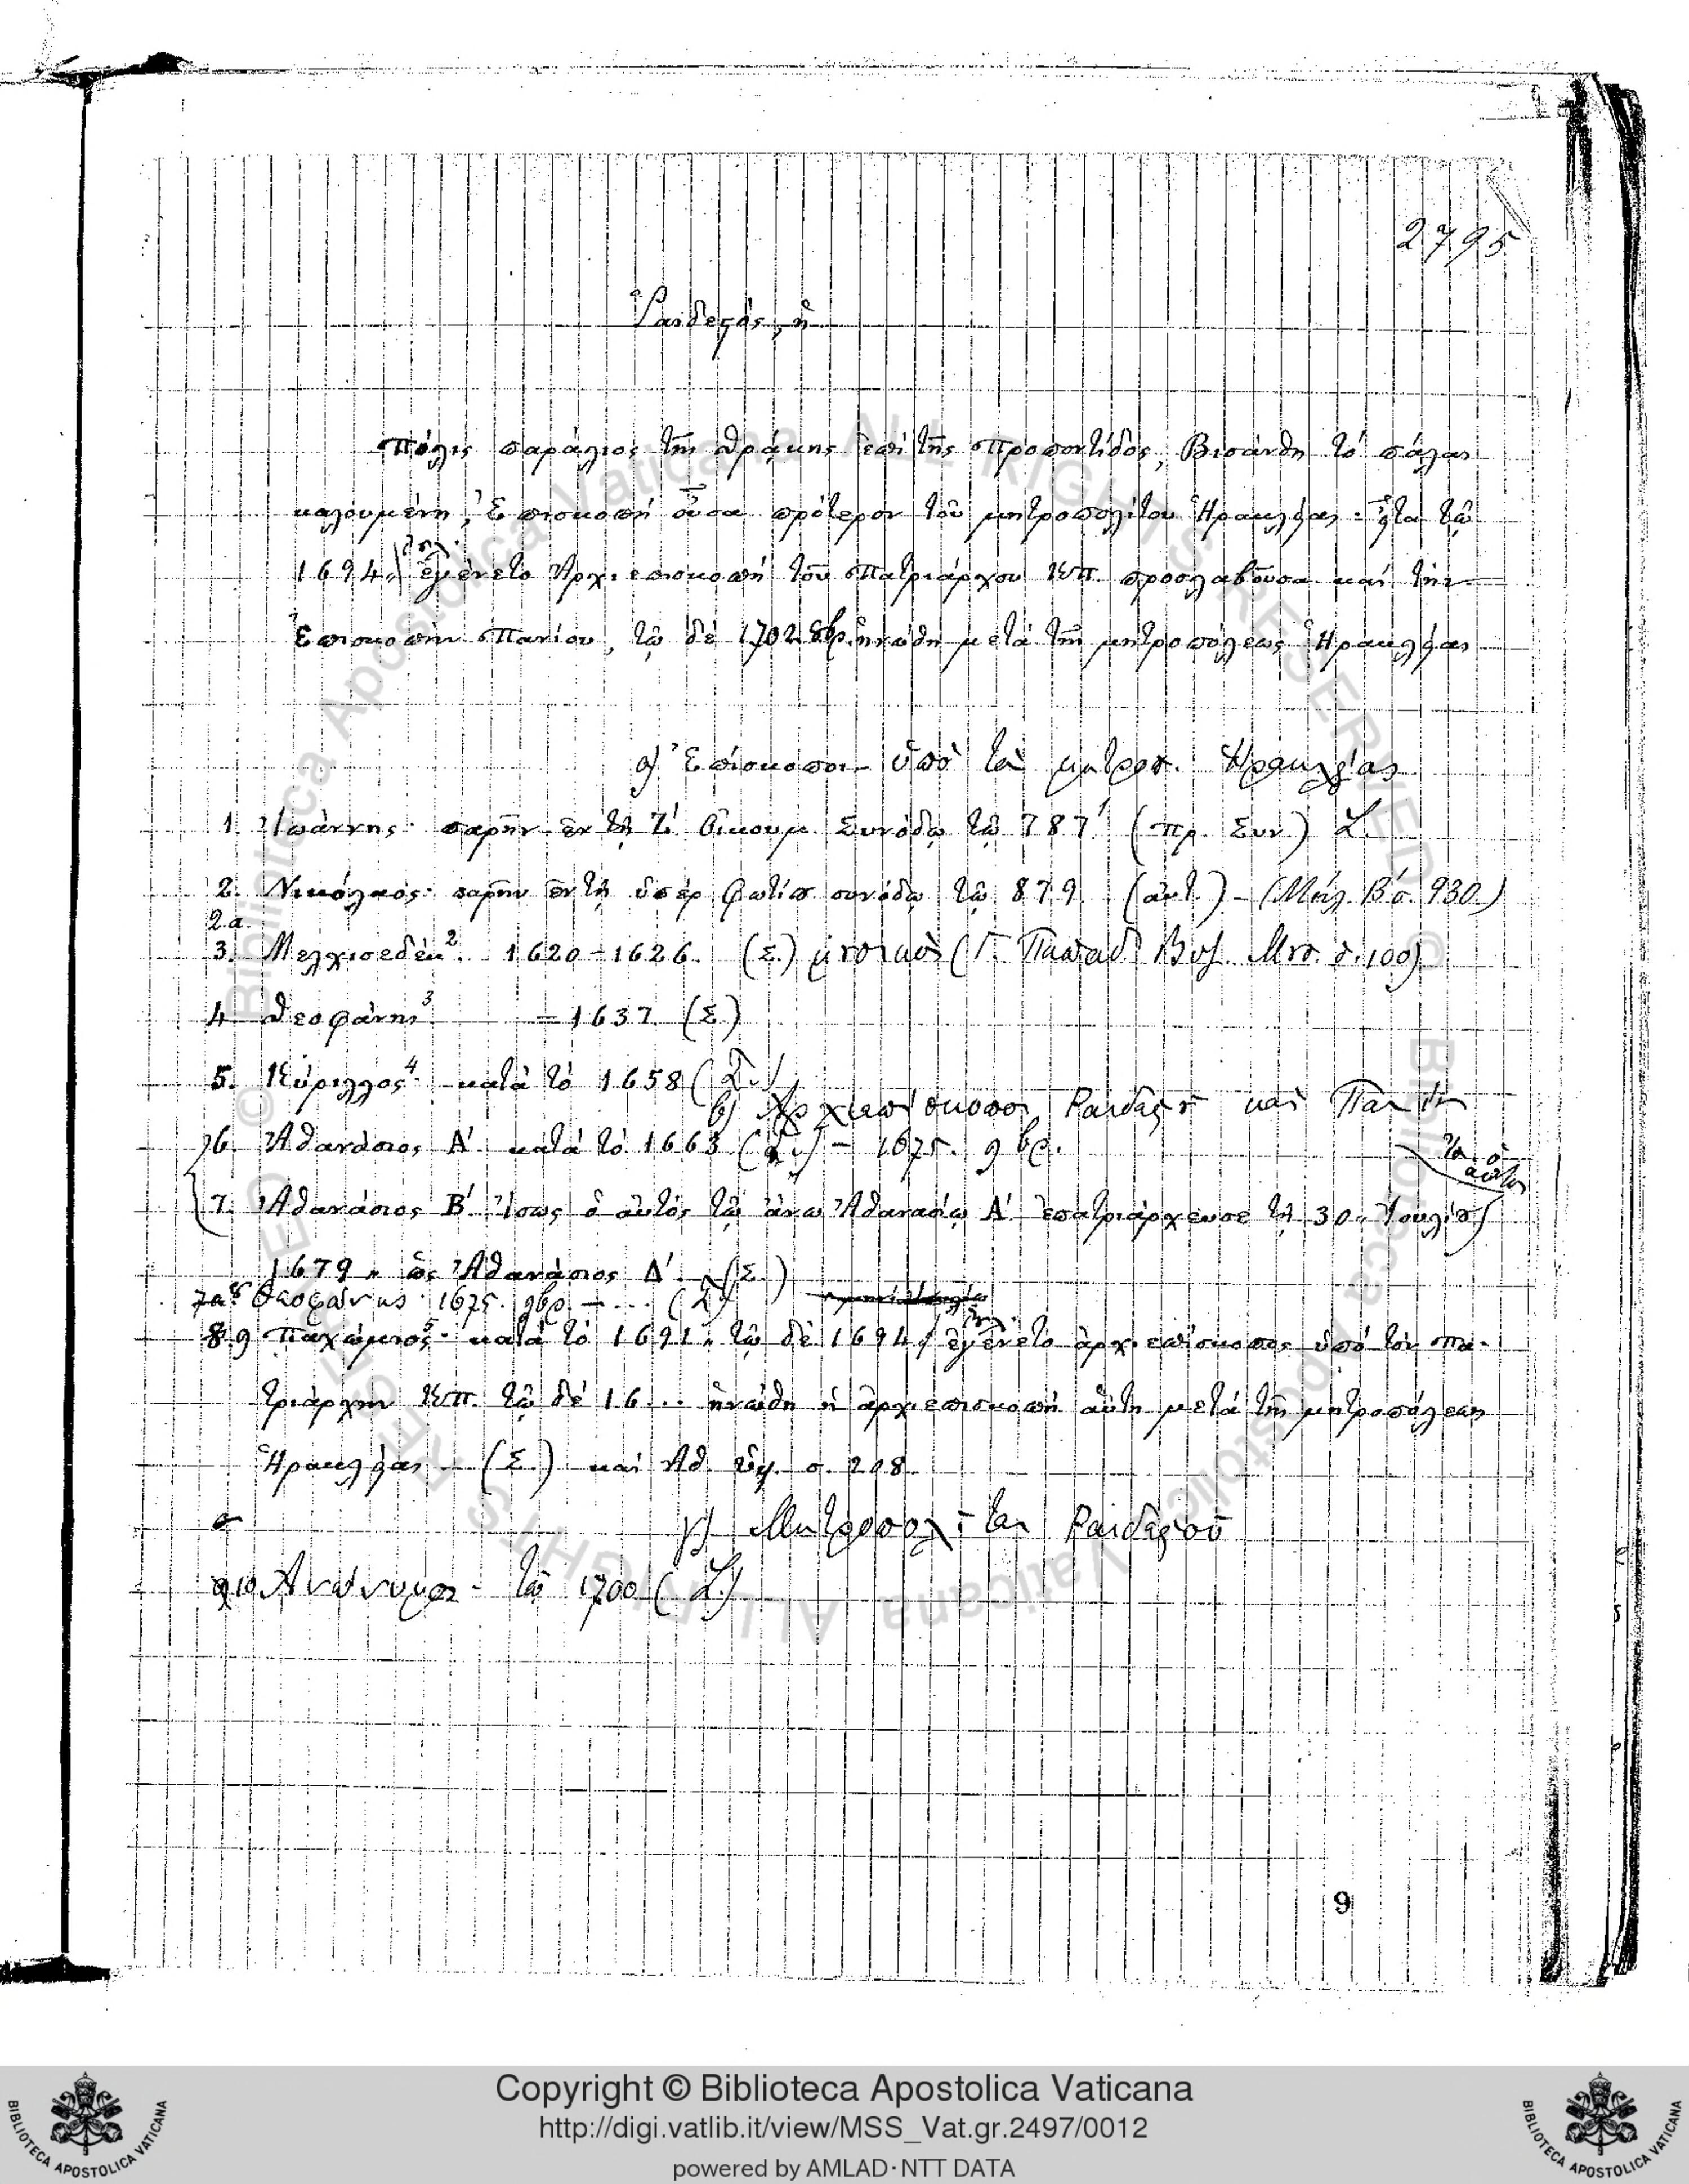 2795
Ῥαιδεστός, ἡ
Πόλις παράλιος τῆς Θράκης ἐπὶ τῆς Προποντίδος, Βισάνθη τὸ πάλαι
καλουμένη, Ἐπισκοπὴ οὖσα πρότερον τοῦ μητροπολίτου Ἡρακλείας· εἶτα τῷ
1694 ἐγένετο Ἀρχιεπισκοπὴ τοῦ Πατριάρχου Κπ. προσλαβοῦσα καὶ τὴν
Ἐπισκοπὴν Πανίου, τῷ δὲ 1702 8βρ. ἡνώθη μετὰ τῆς μητροπόλεως Ἡρακλείας
α) Ἐπίσκοποι ὑπὸ τὸν μητροπ. Ἡρακλείας
1. Ἰωάννης· παρῆν ἐν τῇ Ζ′ Οἰκουμ. Συνόδῳ τῷ 787 ¹ (Πρ. Συν.) Σ.
2. Νικόλαος· παρῆν ἐν τῇ ὑπὲρ Φωτίου συνόδῳ τῷ 879 (αὐτ.) – (Μήλ. Β′ σ. 930.)
2.α.
3. Μελχισεδέκ ². 1620 – 1626. (Σ.) (Γ. Παπαδ. Βυζ. Μουσ. σ. 100)
4 Θεοφάνης ³ – 1637 (Σ.)
5. Κύριλλος ⁴· κατὰ τὸ 1658 (Σ.)
β) Ἀρχιεπίσκοποι Ραιδεστοῦ καὶ Πανίου
6. Ἀθανάσιος Α′ κατὰ τὸ 1663 (Σ.) – 1675. 9βρ.
ὁ
αὐτὸς
7. Ἀθανάσιος Β′ Ἴσως ὁ αὐτὸς τῷ ἄνω Ἀθανασίῳ Α′ ἐπατριάρχευσε τῇ 30 Ἰουλίου
1679 ὡς Ἀθανάσιος Δ′. (Σ.)
7α 8 Θεοφάνης 1675. 9βρ. – .... (Σ.)
8.9 Παχώμιος ⁵· κατὰ τὸ 1691· τῷ δὲ 1694 ἐγένετο ἀρχιεπίσκοπος ὑπὸ τὸν πα-
τριάρχην Κπ. τῷ δὲ 16... ἡνώθη ἡ ἀρχιεπισκοπὴ αὕτη μετὰ τῆς μητροπόλεως
Ἡρακλείας – (Σ.) καὶ Ἀθ. Ὑψ. σ. 208
γ) Μητροπολῖται Ραιδεστοῦ
10 Ἀνώνυμος – τῷ 1700 (Σ.)
9
Copyright © Biblioteca Apostolica Vaticana
http://digi.vatlib.it/view/MSS_Vat.gr.2497/0012
powered by AMLAD·NTT DATA
BIBLIOTECA APOSTOLICA VATICANA
BIBLIOTECA APOSTOLICA VATICANA